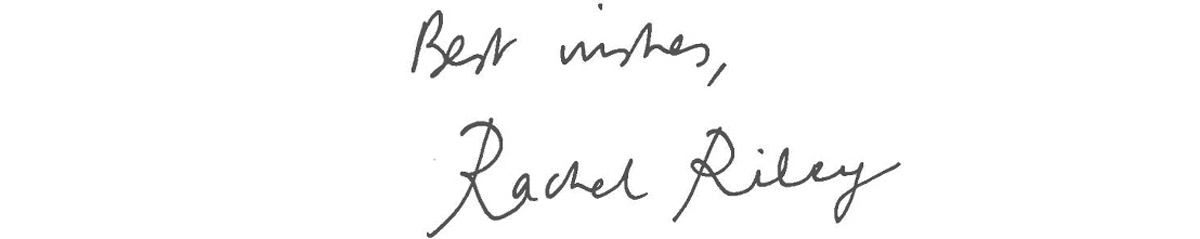 Best wishes,
Rachel Riley